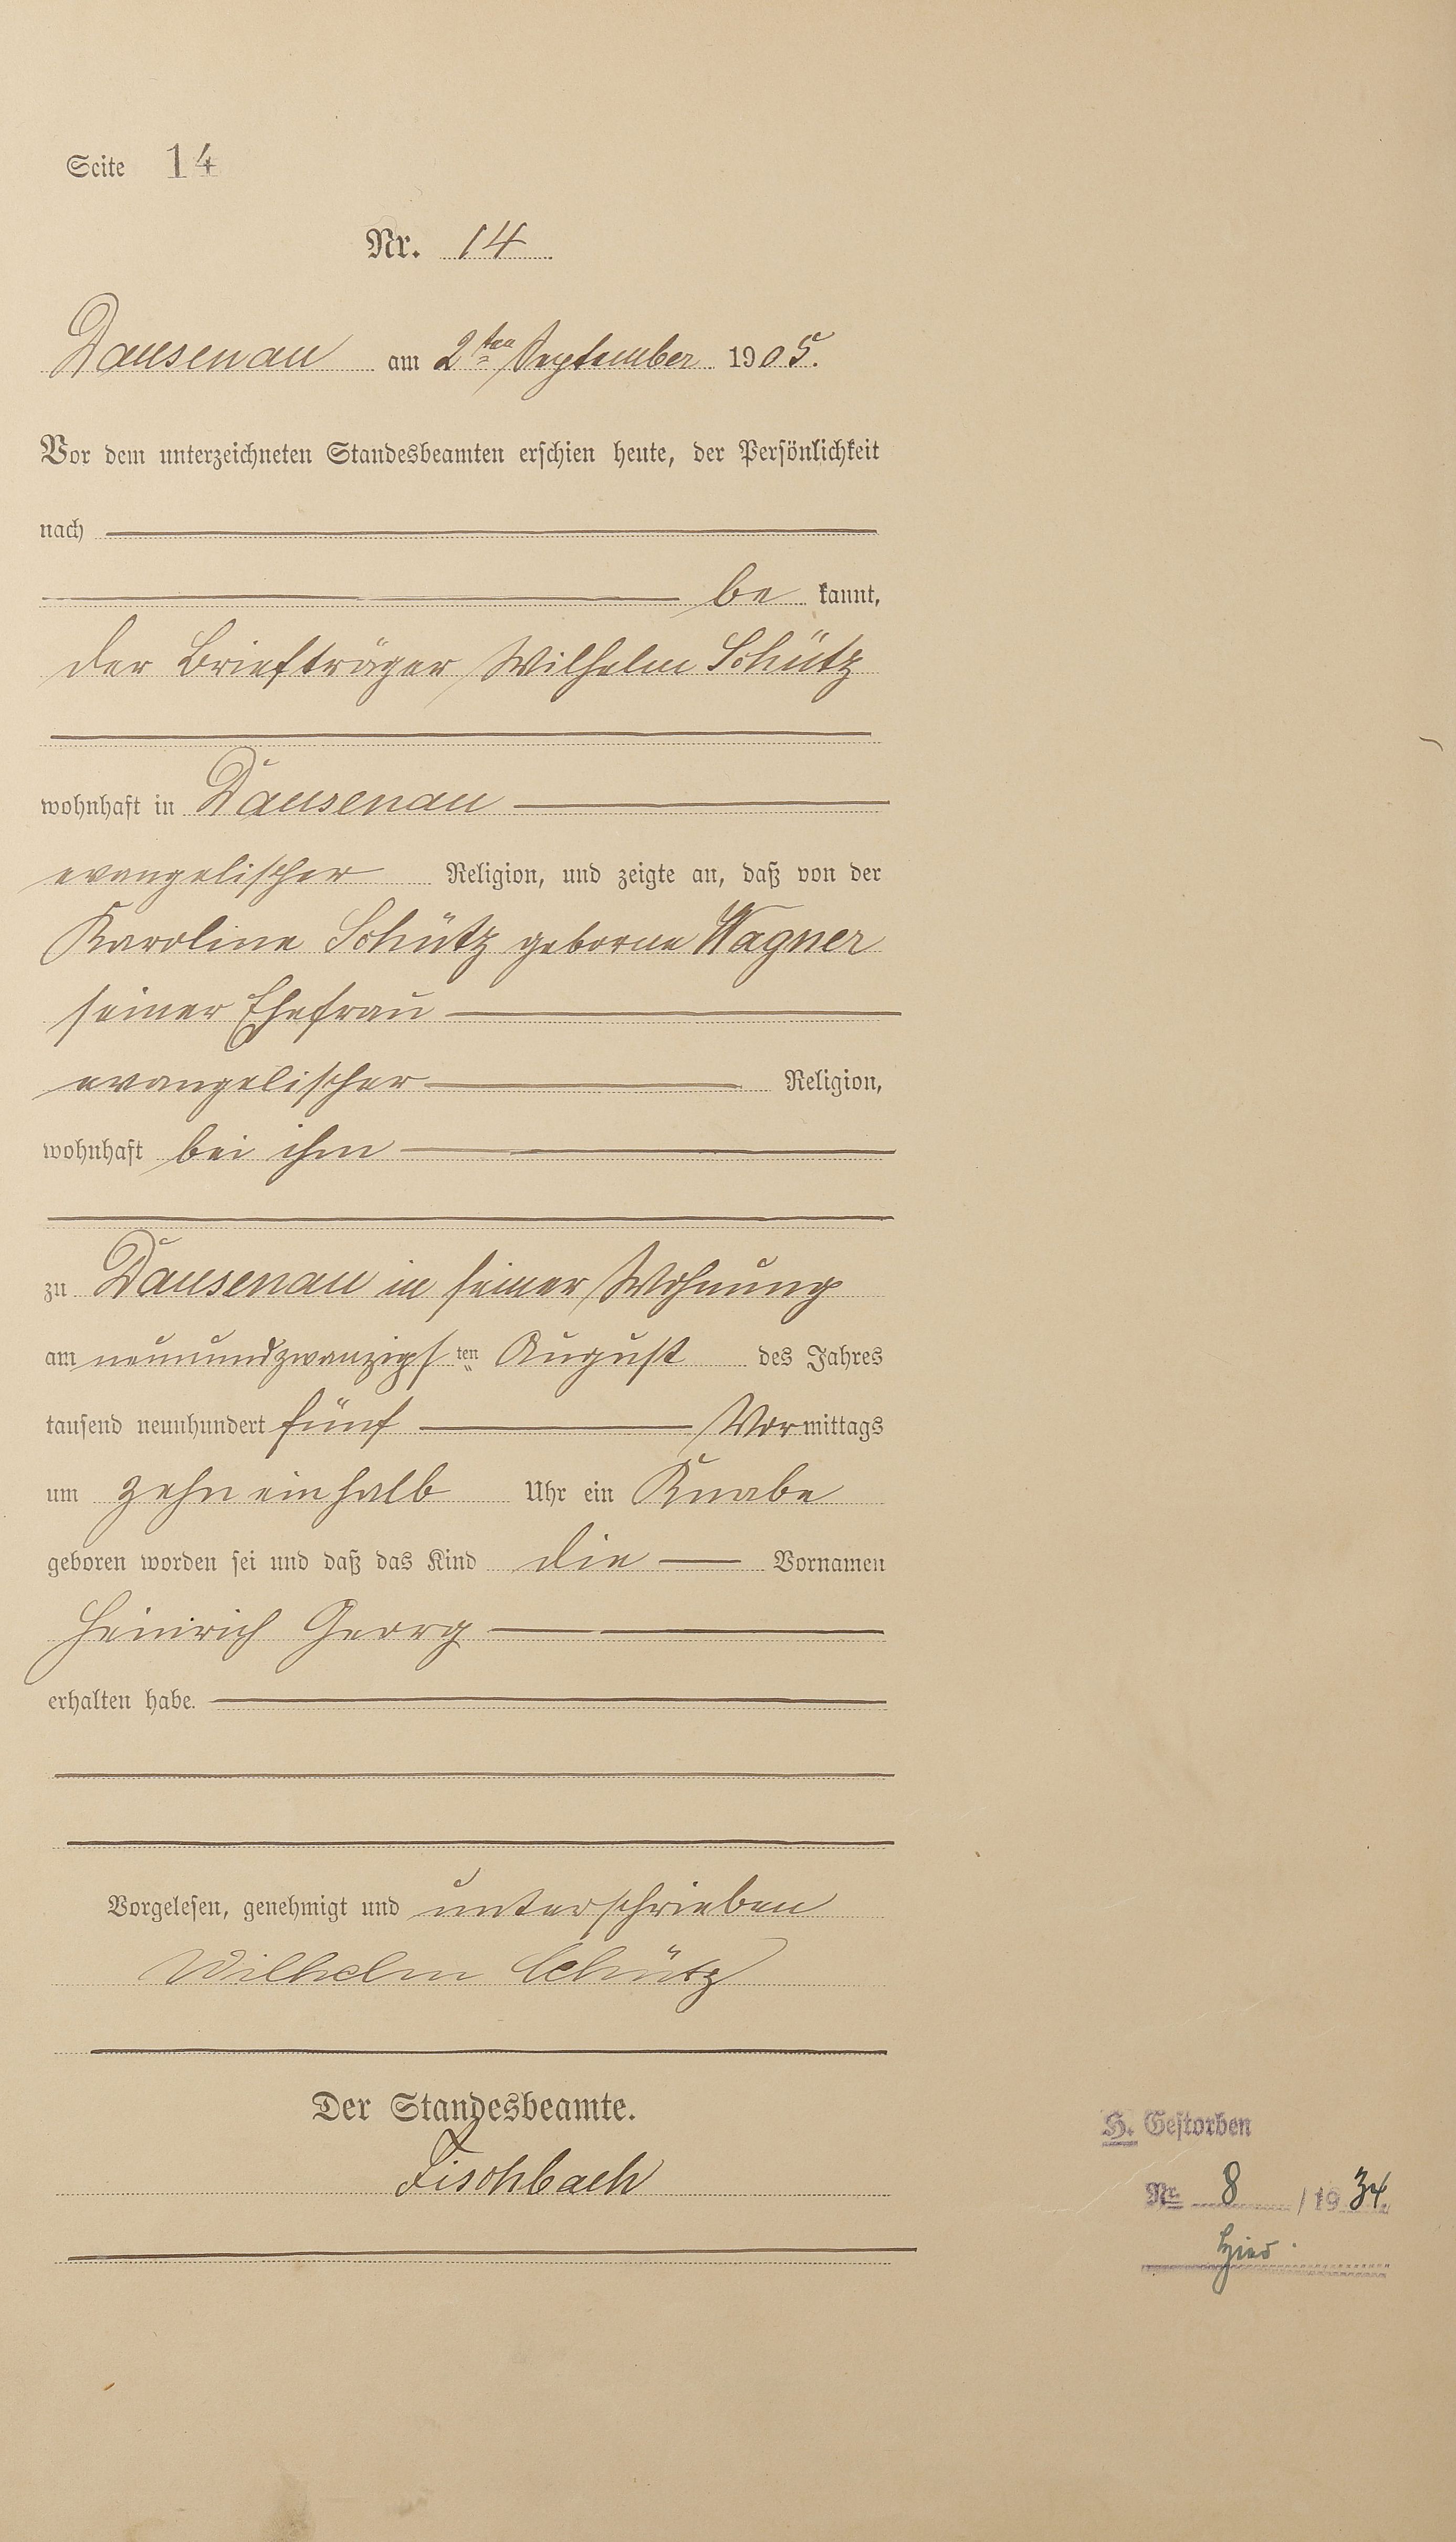 Seite 14
Nr. 14
Dausenau am 2ten September 1905.
Vor dem unterzeichneten Standesbeamten erschien heute, der Persönlichkeit
nach
be kannt,
der Briefträger Wilhelm Schütz
wohnhaft in Dausenau
evangelischer Religion, und zeigte an, daß von der
Karoline Schütz geborne Wagner
seiner Ehefrau
evangelischer Religion,
wohnhaft bei ihm
zu Dausenau in seiner Wohnung
am neunundzwanzigsten August des Jahres
tausend neunhundert fünf Vormittags
um zehn ein halb Uhr ein Knabe
geboren worden sei und daß das Kind die Vornamen
Heinrich Georg
erhalten habe.
Vorgelesen, genehmigt und unterschrieben
Wilhelm Schütz
Der Standesbeamte.
Fischbach
H. Gestorben
Nr. 8 / 19 34.